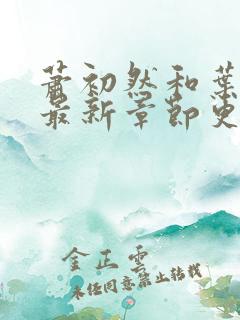 萧初然和葉
最新章節更
金正雲
未经同意禁止转载